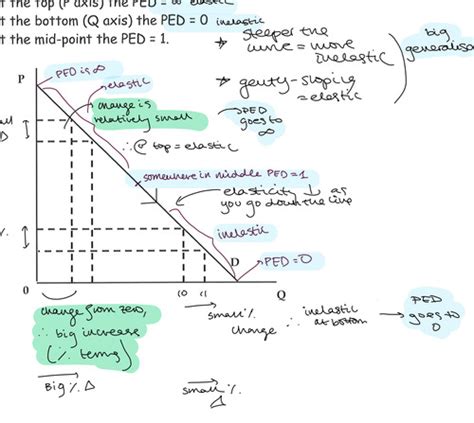 t the top (P axis) the PED = ∞ elastic
t the bottom (Q axis) the PED = 0 inelastic
t the mid-point the PED = 1.
* steeper the curve = more inelastic
* gently-sloping = elastic
big generalisa
P
PED is ∞
elastic
change is relatively small
→ PED goes to ∞
∴ @ top = elastic
all
D
somewhere in middle PED=1
elasticity ↓ as you go down the line
inelastic
r.
D
PED=0
0
10
11
Q
change from zero,
∴ big increase
(% terms)
Big % Δ
small % change
∴ inelastic at bottom
→ PED goes to 0
small % Δ